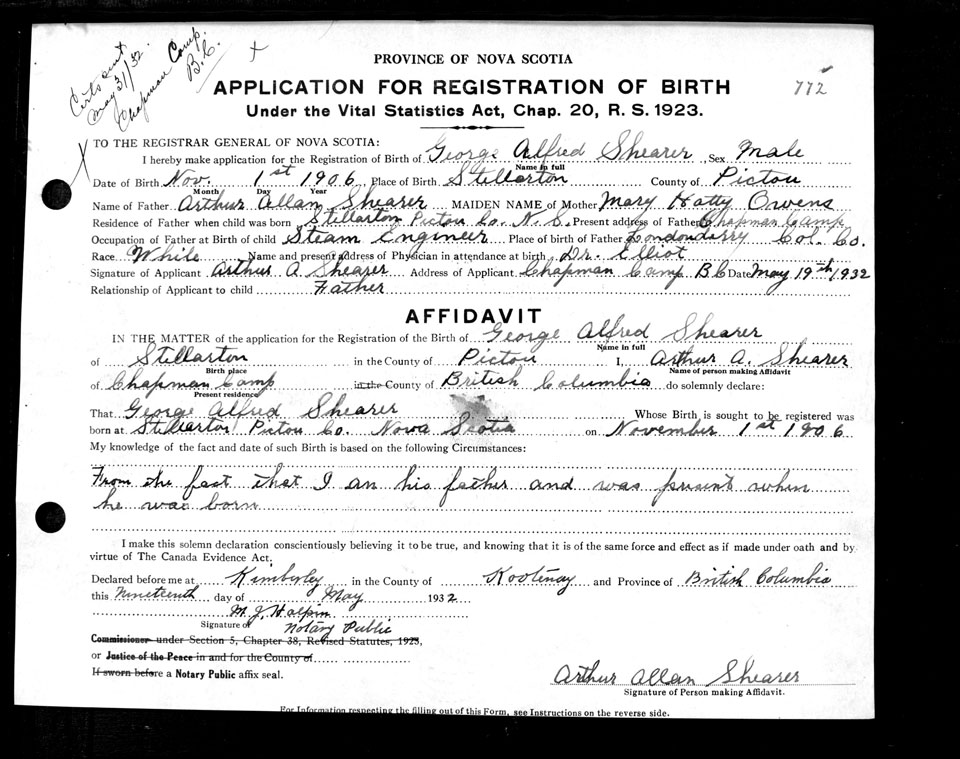 Certs sent
May 31/32.
Chapman Camp.
B.C.
X
PROVINCE OF NOVA SCOTIA
APPLICATION FOR REGISTRATION OF BIRTH
772
Under the Vital Statistics Act, Chap. 20, R. S. 1923.
X
TO THE REGISTRAR GENERAL OF NOVA SCOTIA:
I hereby make application for the Registration of Birth of George Alfred Shearer Sex Male
Name in full
Date of Birth Nov. 1st 1906 Place of Birth Stellarton County of Pictou
Month Day Year
Name of Father Arthur Allan Shearer MAIDEN NAME of Mother Mary Hatty Owens
Residence of Father when child was born Stellarton Pictou Co. N.S. Present address of Father Chapman Camp
Occupation of Father at Birth of child Steam Engineer Place of birth of Father Londonderry Col. Co.
Race White Name and present address of Physician in attendance at birth Dr. Elliot
Signature of Applicant Arthur A. Shearer Address of Applicant Chapman Camp BC Date May 19th 1932
Relationship of Applicant to child Father
AFFIDAVIT
IN THE MATTER of the application for the Registration of the Birth of George Alfred Shearer
Name in full
of Stellarton in the County of Pictou I, Arthur A. Shearer
Birth place Name of person making Affidavit
of Chapman Camp in the County of British Columbia do solemnly declare:
Present residence
That George Alfred Shearer Whose Birth is sought to be registered was
born at Stellarton Pictou Co. Nova Scotia on November 1st 1906
My knowledge of the fact and date of such Birth is based on the following Circumstances:
From the fact that I an his father and was present when
he was born
I make this solemn declaration conscientiously believing it to be true, and knowing that it is of the same force and effect as if made under oath and by
virtue of The Canada Evidence Act.
Declared before me at Kimberley in the County of Kootenay and Province of British Columbia
this Nineteenth day of May 1932
M. J. Halpin
Signature of Notary Public
Commissioner under Section 5, Chapter 38, Revised Statutes, 1923,
or Justice of the Peace in and for the County of
If sworn before a Notary Public affix seal.
Arthur Allan Shearer
Signature of Person making Affidavit.
For Information respecting the filling out of this Form, see Instructions on the reverse side.